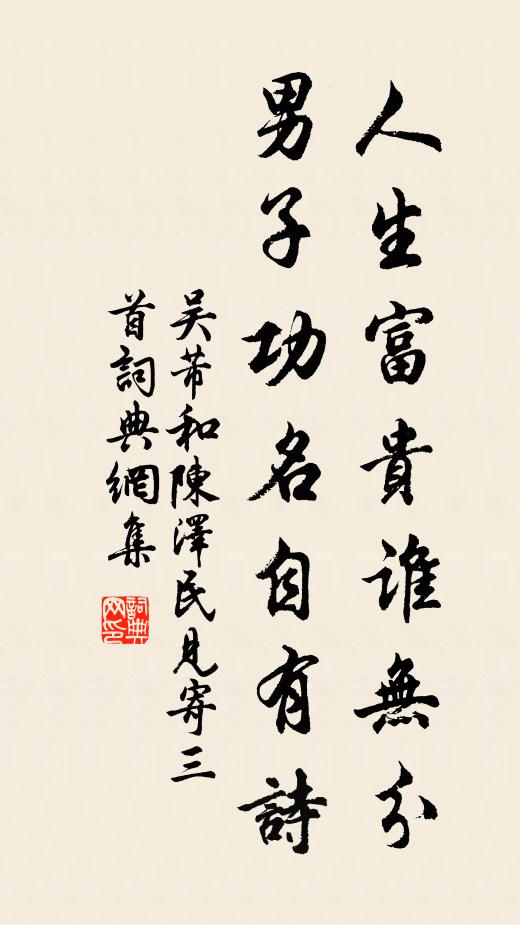 人生富貴誰無分
男子功名自有詩
吳芾和陳澤民見寄三
首詞典網集
詞典
网印